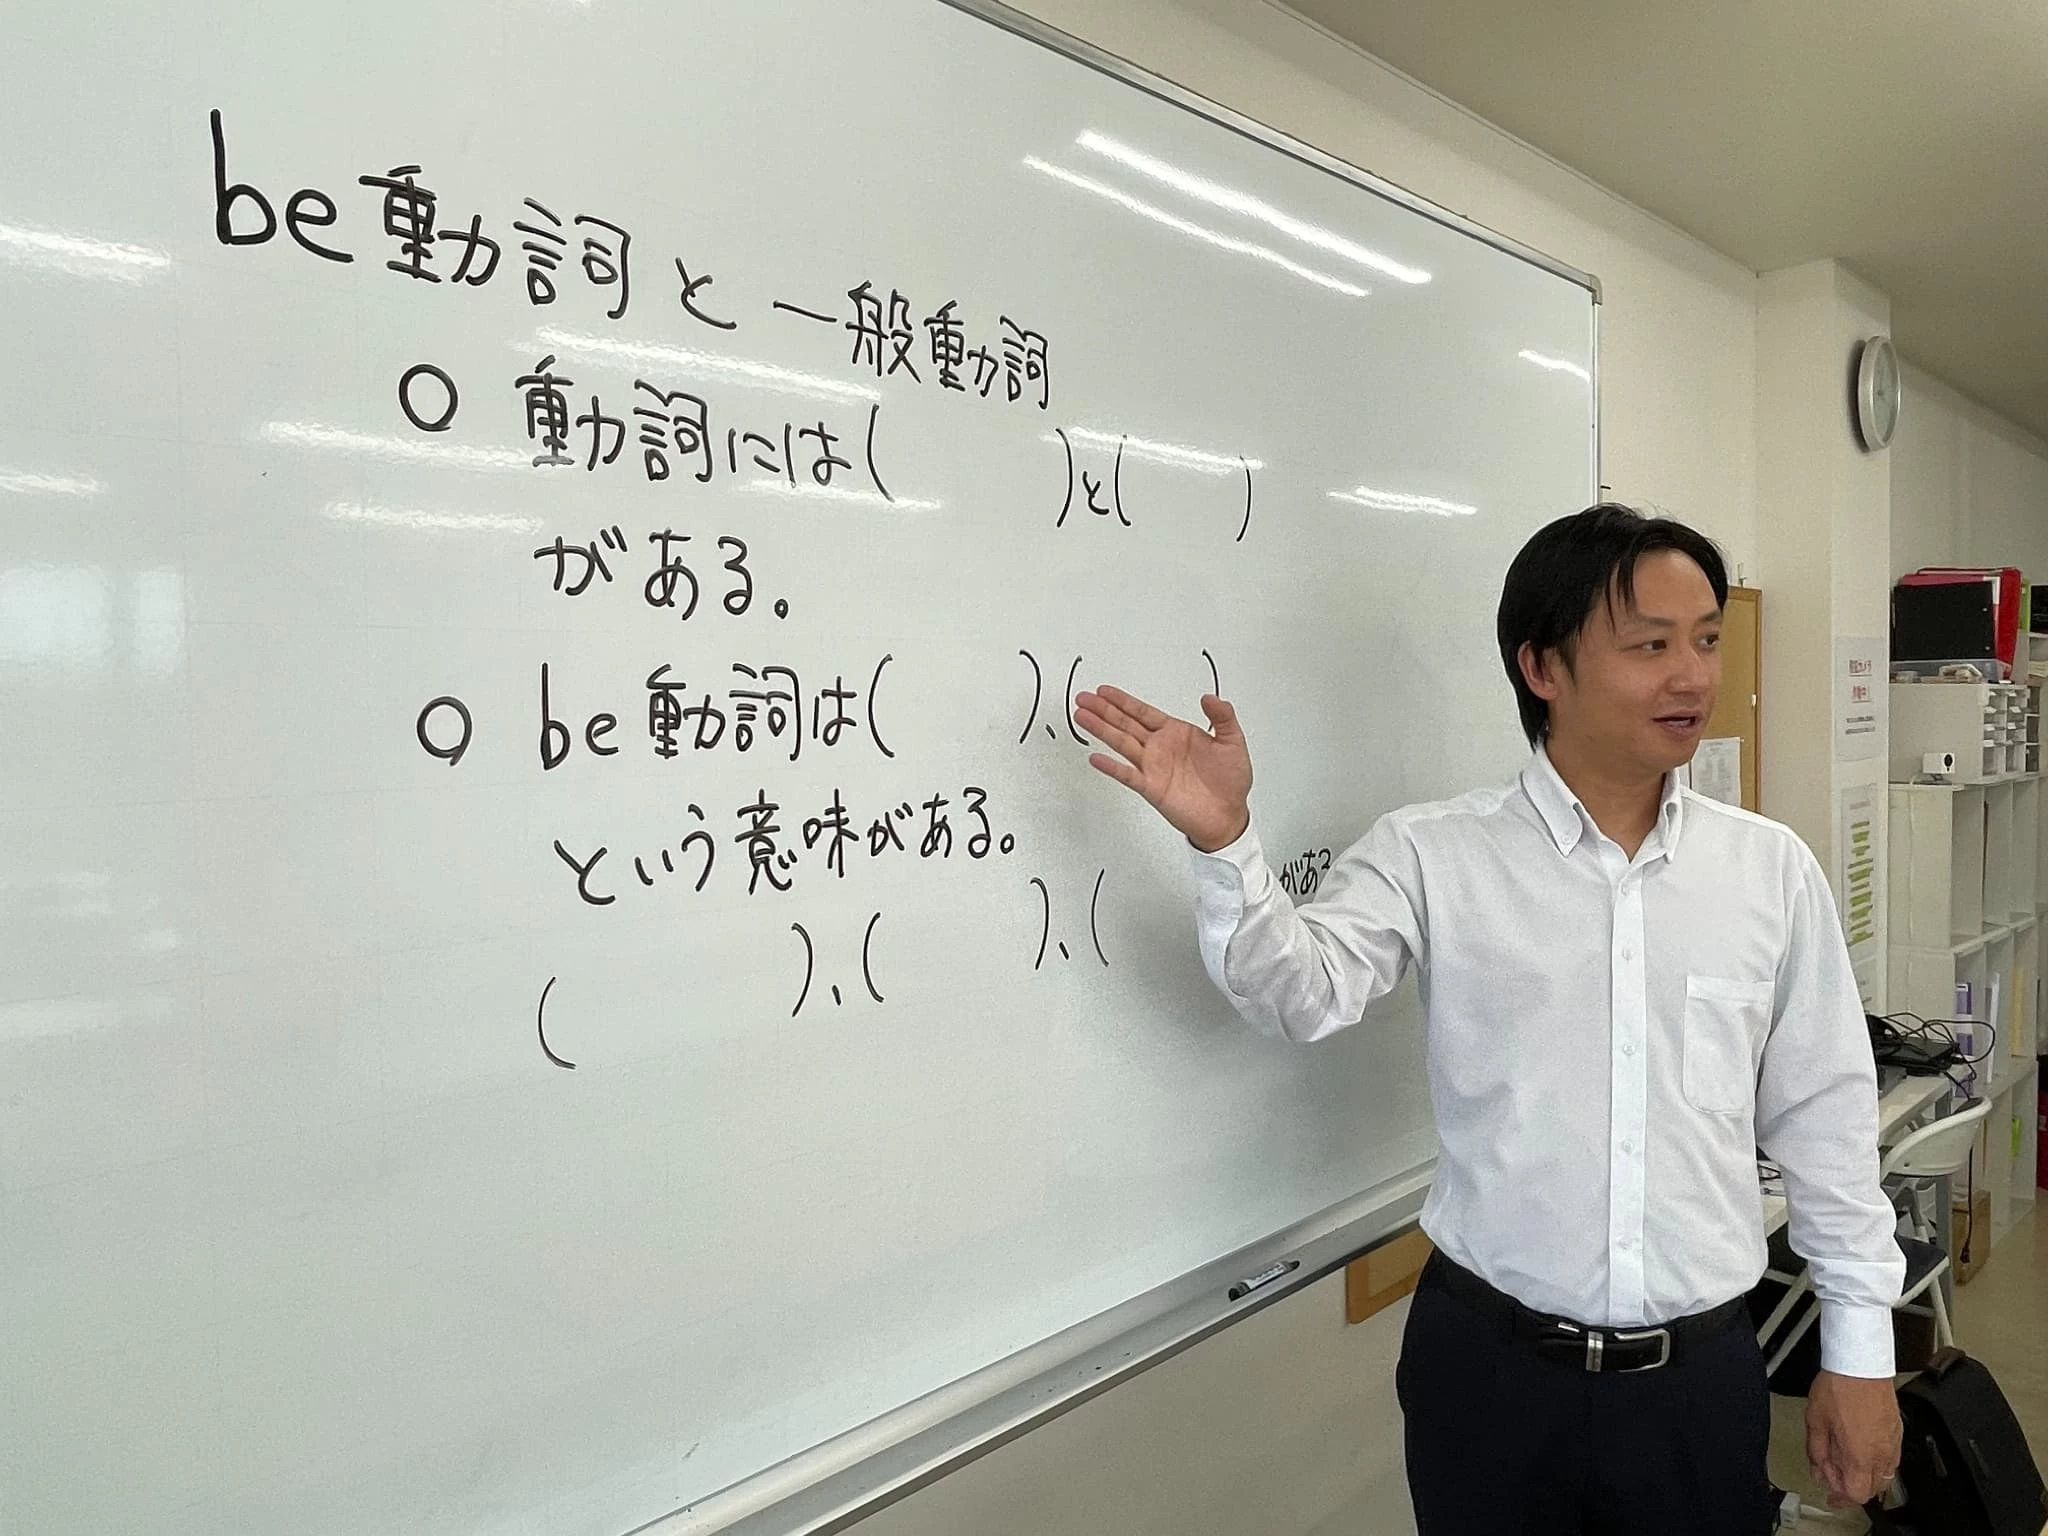 be動詞と一般動詞
○ 動詞には( )と( )
がある。
○ be動詞は( )、( )
という意味がある。
( )、( )、( がある